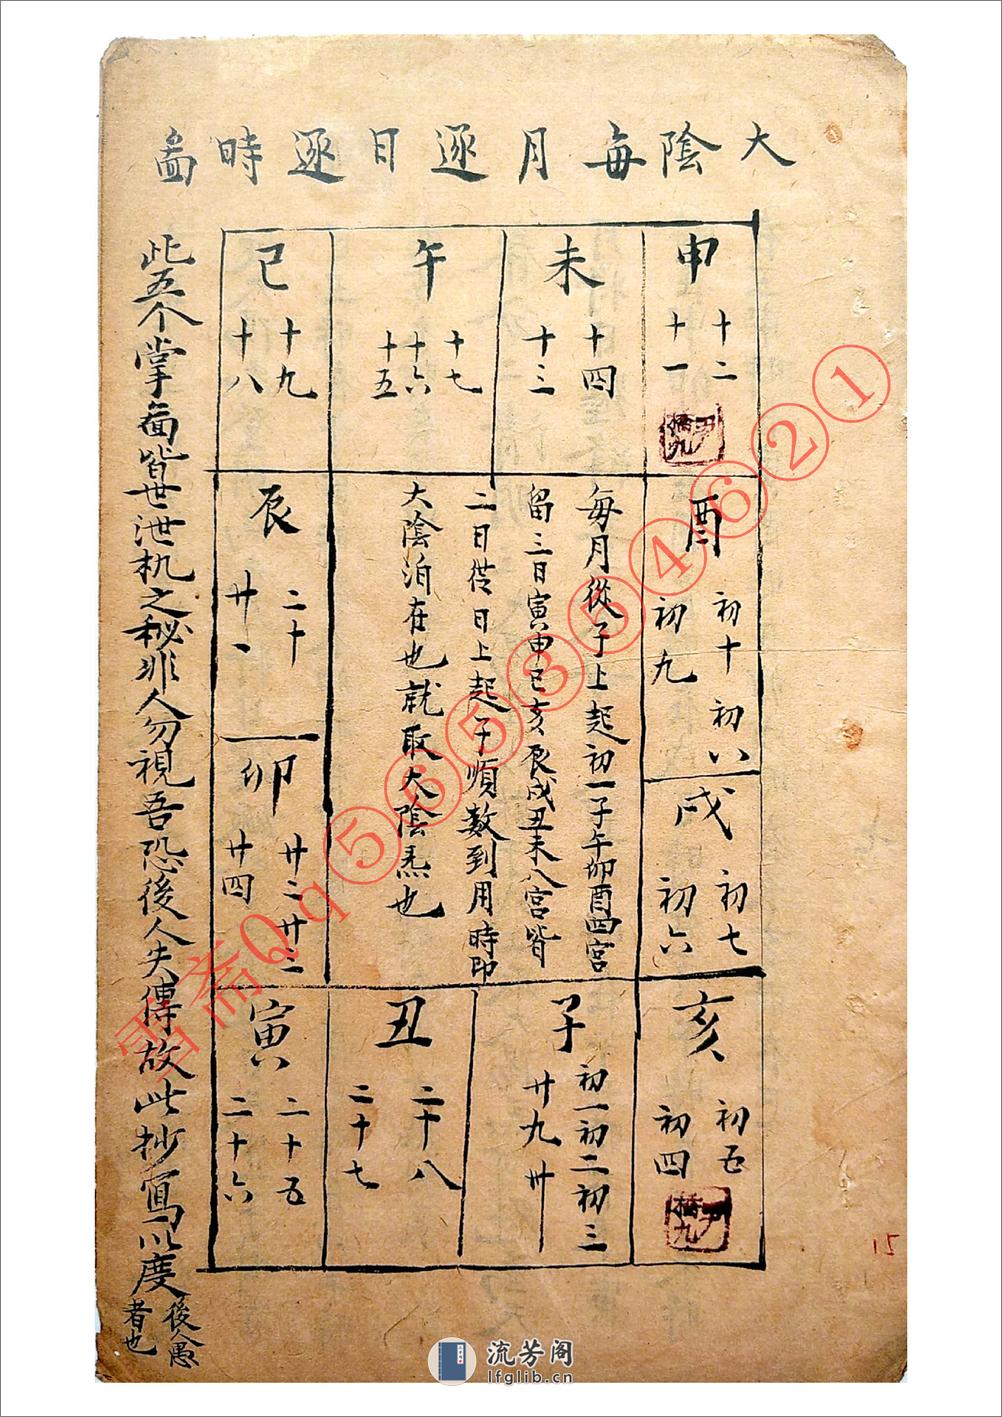 大陰每月逐日逐時啚
申
十二
十一
未
十四
十三
午
十七
十六
十五
巳
十九
十八
酉
初十 初八
初九
戌
初七
初六
每月從子上起初一子午卯酉四宮
留三日寅申巳亥辰戌丑未八宮皆
二日從日上起子順数到用時即
大陰泊在也就取大陰炁也
辰
二十
廿一
卯
廿二 廿三
廿四
亥
初五
初四
子
初一初二初三
廿九 卅
丑
二十八
二十七
寅
二十五
二十六
此五个掌啚皆世泄机之秘非人勿視吾恐後人失傳故此抄寫以度後愚
者也
橋九
橋九
Qq⑤⑥⑤③⑤⑤④⑥②①
15
流芳阁
lfglib.cn